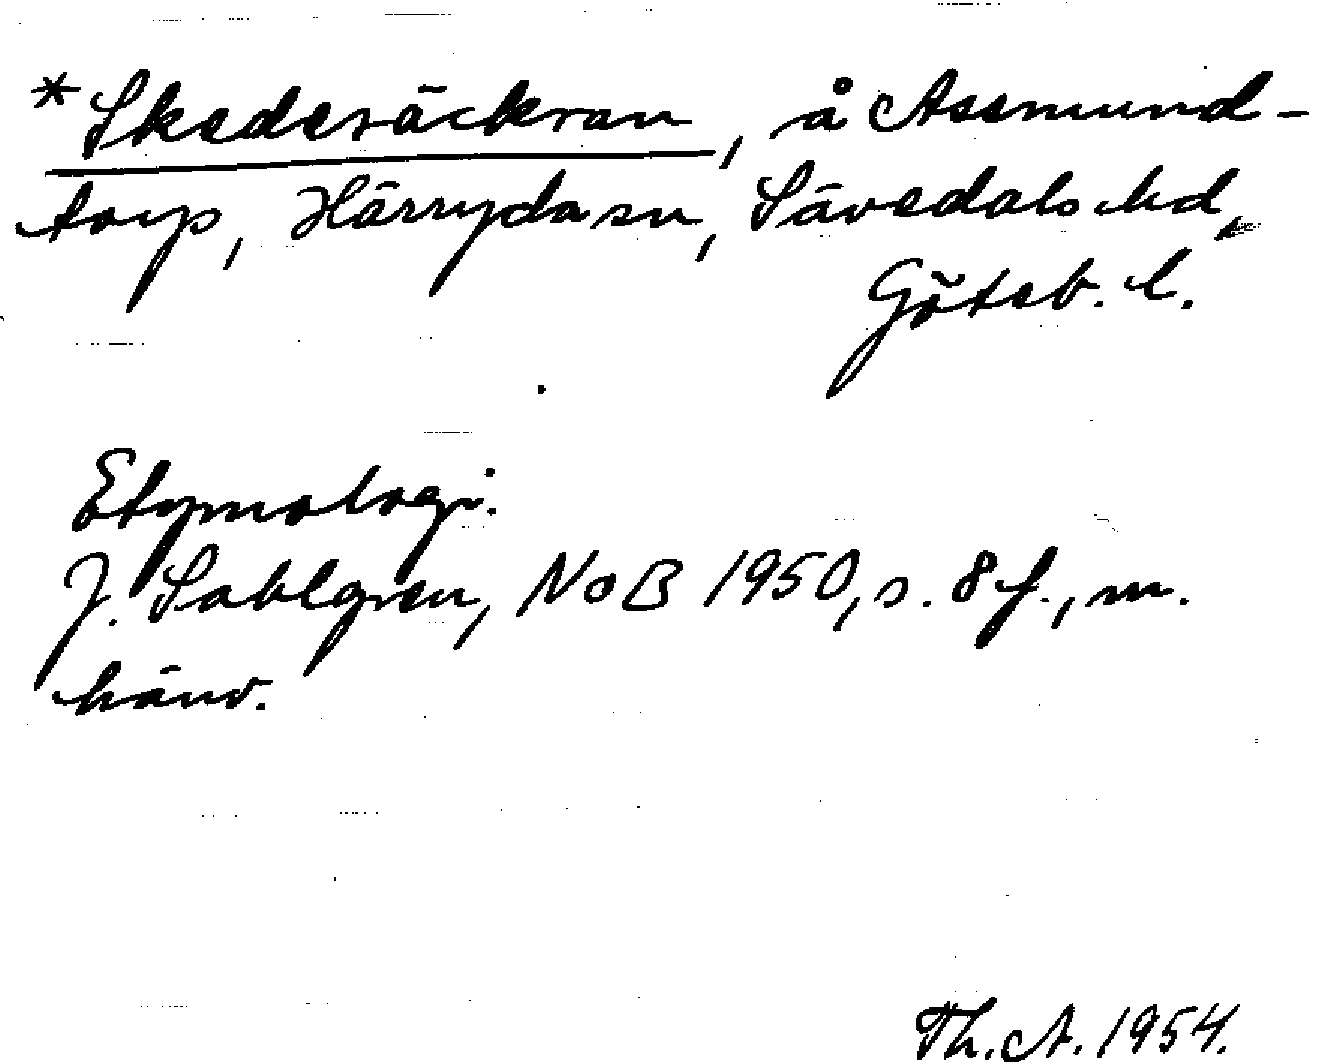 *Skederäckran, å Assmund-
torp, Härryda sn, Sävedals hd,
Göteb. l.
Etymologi.
J. Sahlgren, NoB 1950, s. 8 f., m.
hänv.
Th. A. 1954.